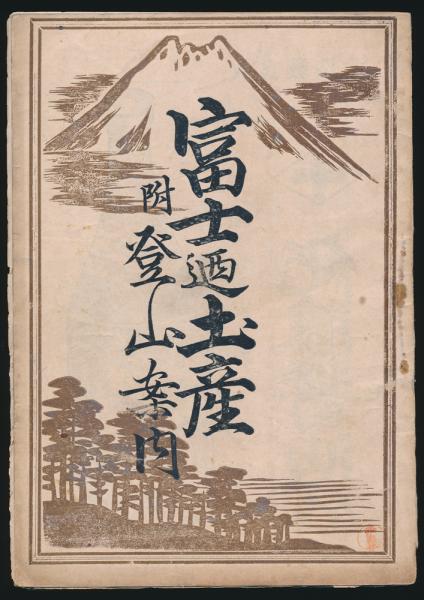 富士迺土産
附 登山案内